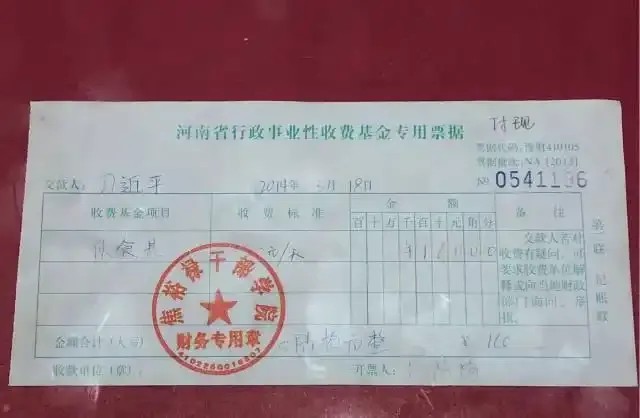 河南省行政事业性收费基金专用票据
付现
票据代码:豫财410105
票据批次:NA[2013]
№ 0541196
交款人: 习近平 2014年 3月 18日
收费基金项目 收费标准 金额 备注
百十万千百十元角分
伙食费 元/天 ¥16000
交款人若对收费有疑问,可要求收费单位解释或向当地财政部门询问、举报。
第一联 记账联
焦裕禄干部学院
财务专用章
金额合计(大写) 陆拾元整 ¥ 160
收款单位(章): 开票人: